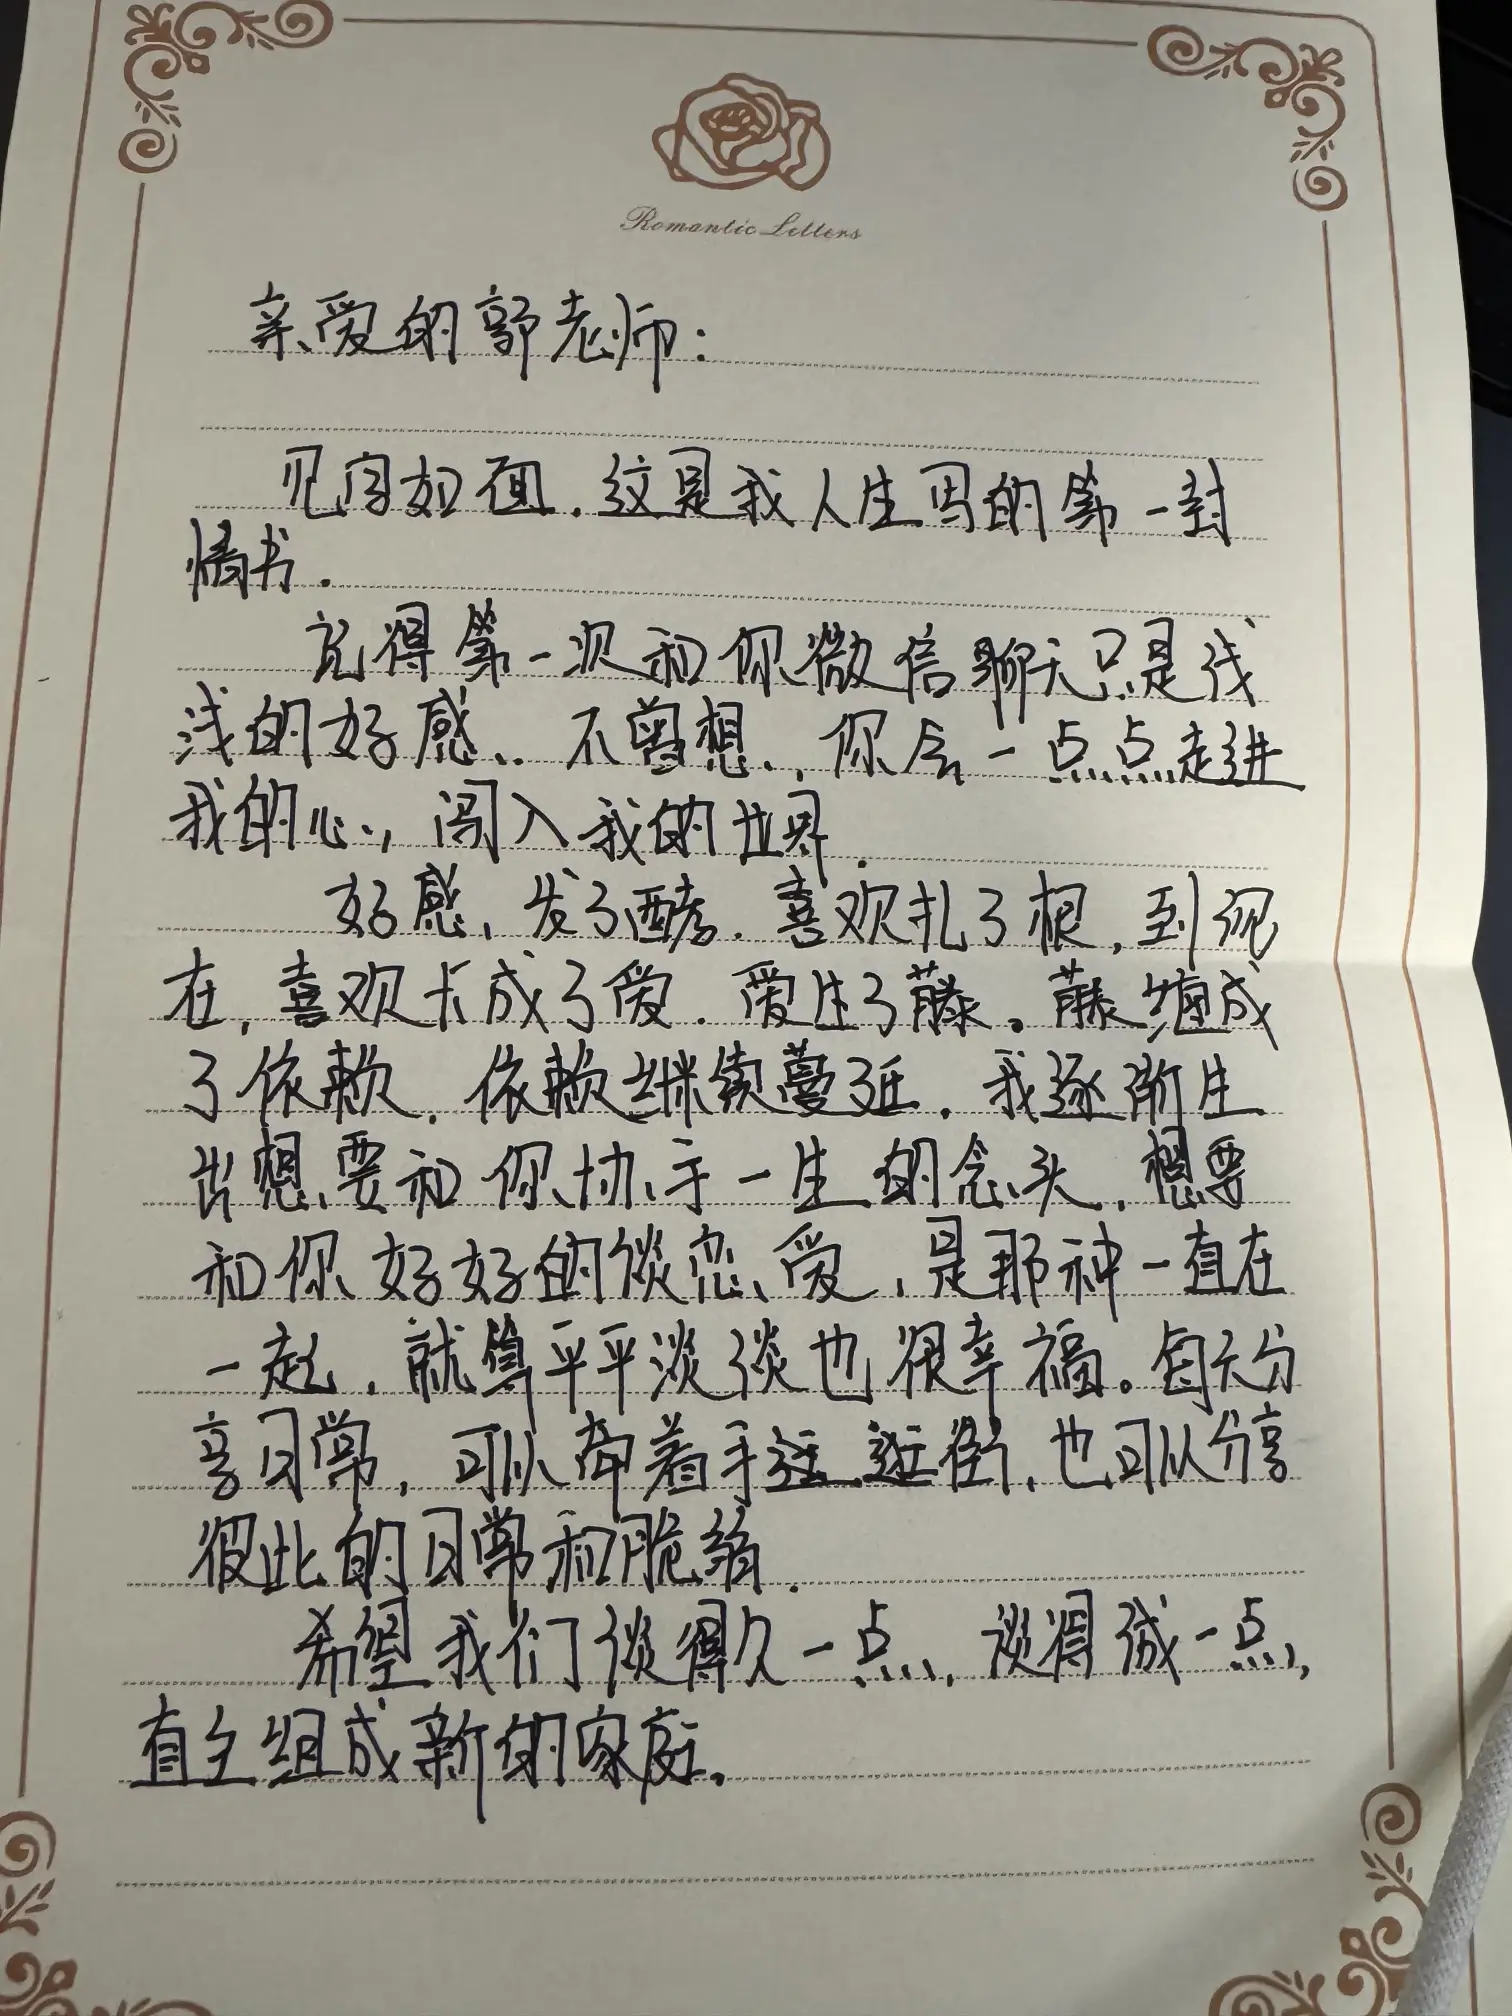 Romantic Letters
亲爱的郭老师:
见字如面.这是我人生写的第一封
情书.
记得第一次和你微信聊天只是浅
浅的好感.不曾想,你会一点点走进
我的心,闯入我的世界.
好感,发了酵.喜欢扎了根,到现
在,喜欢长成了爱.爱生了藤。藤缠成
了依赖.依赖继续蔓延.我逐渐生
出想要和你协手一生的念头,想要
和你好好的谈恋爱,是那种一直在
一起,就算平平淡淡也很幸福。每天分
享日常,可以牵着手逛逛街,也可以分享
彼此的日常和脆弱.
希望我们谈得久一点,谈得诚一点,
直至组成新的家庭.